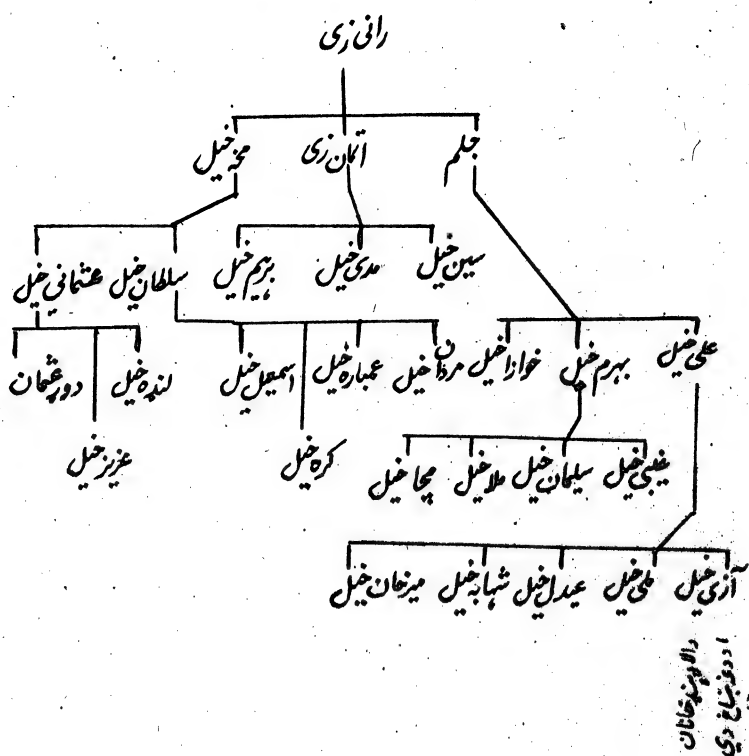 رانی زی
جلم اتمان زی مخہ خیل
سین خیل مدی خیل بریم خیل سلطان خیل عثمانی خیل
علی خیل بہرم خیل خوازا خیل مردان خیل عمبارہ خیل اسمعیل خیل لنڈہ خیل دوپر عثمان
کرہ خیل عزیز خیل
غیبی خیل سلیمان خیل ملا خیل میچا خیل
آزی خیل ملی خیل عیدل خیل شہابہ خیل میرخان خیل